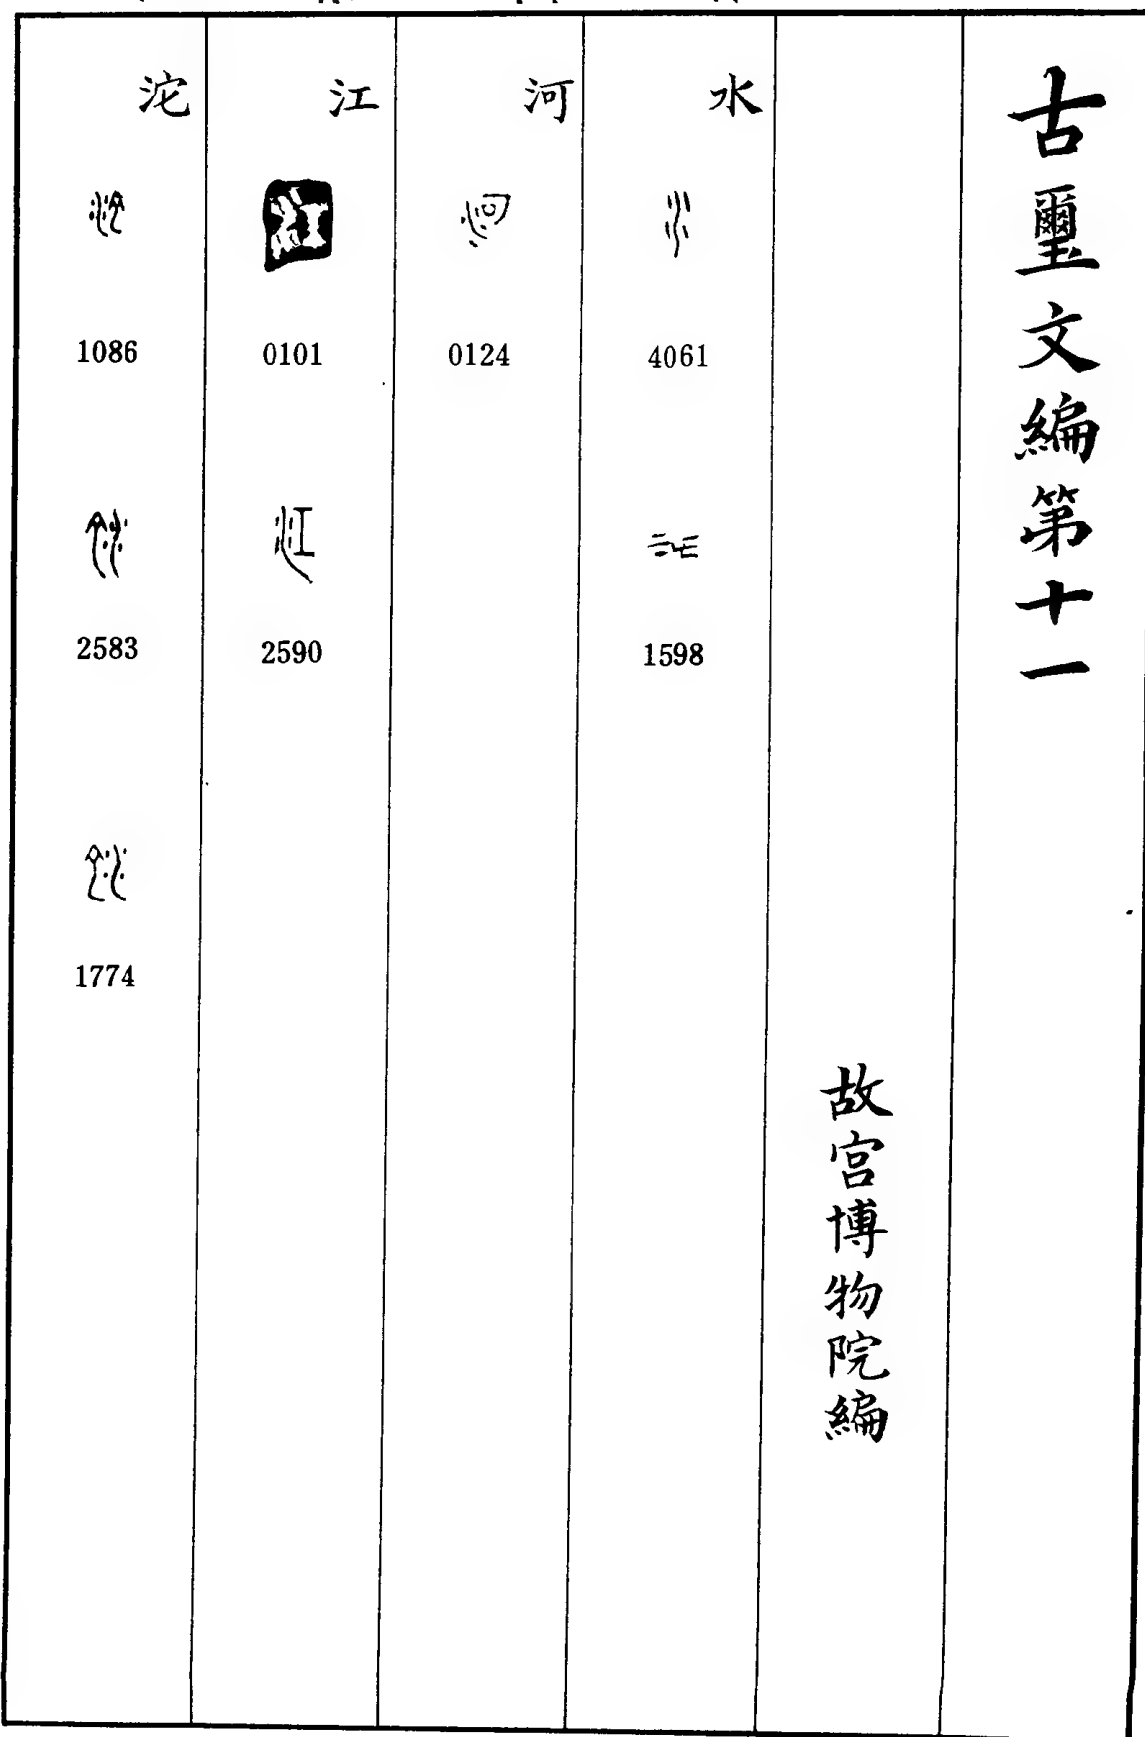 古璽文編第十一
故宮博物院編
水
4061
1598
河
0124
江
0101
2590
沱
1086
2583
1774